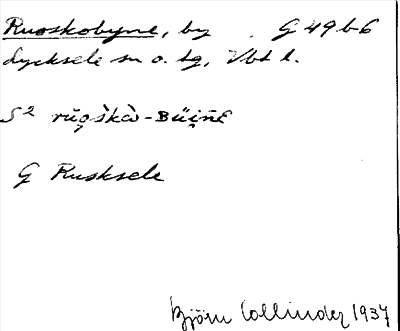 Ruoskobyne, by . G 49 b-6
Lycksele sn o. tg, Vbt l.
S2 rŭǫškà-Büi̯ñE
G Rusksele
Björn Collinder 1937